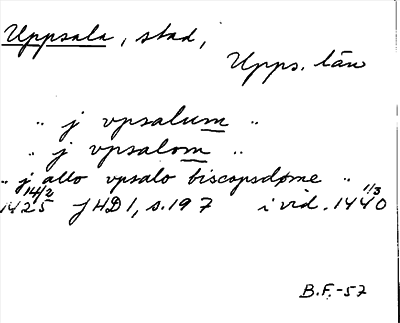 Uppsala, stad,
Upps. län
" j vpsalum "
" j vpsalom "
" j allo vpsalo biscopsdøme "
1425 14/2 JHD 1, s.197 i vid. 1440 1/3
B.F.-57